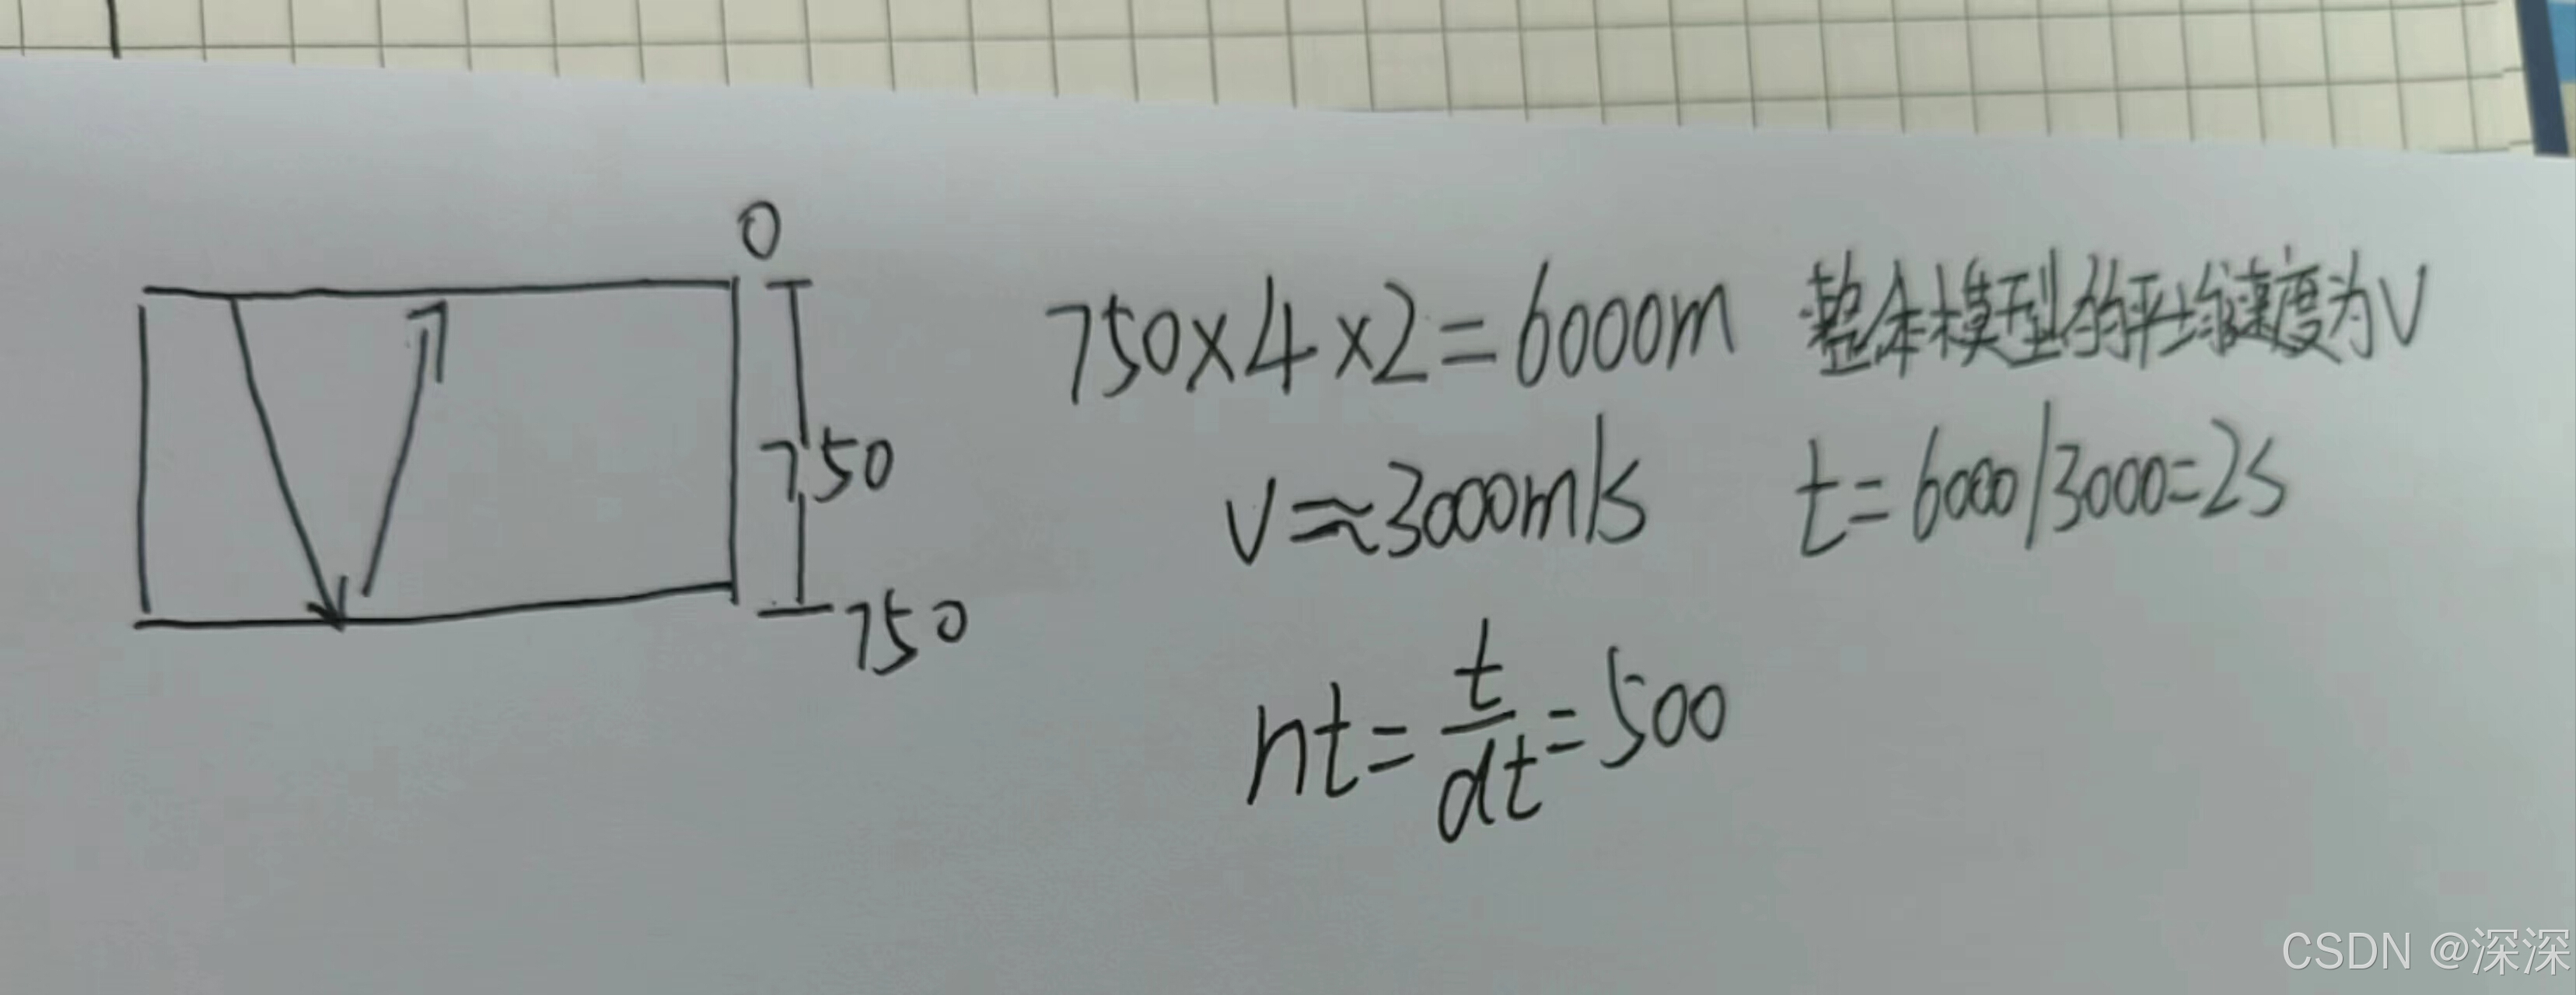 0
750
750
750×4×2=6000m 整体模型的平均速度为V
V≈3000m/s t=6000/3000=2s
nt=t/dt=500
CSDN @深深